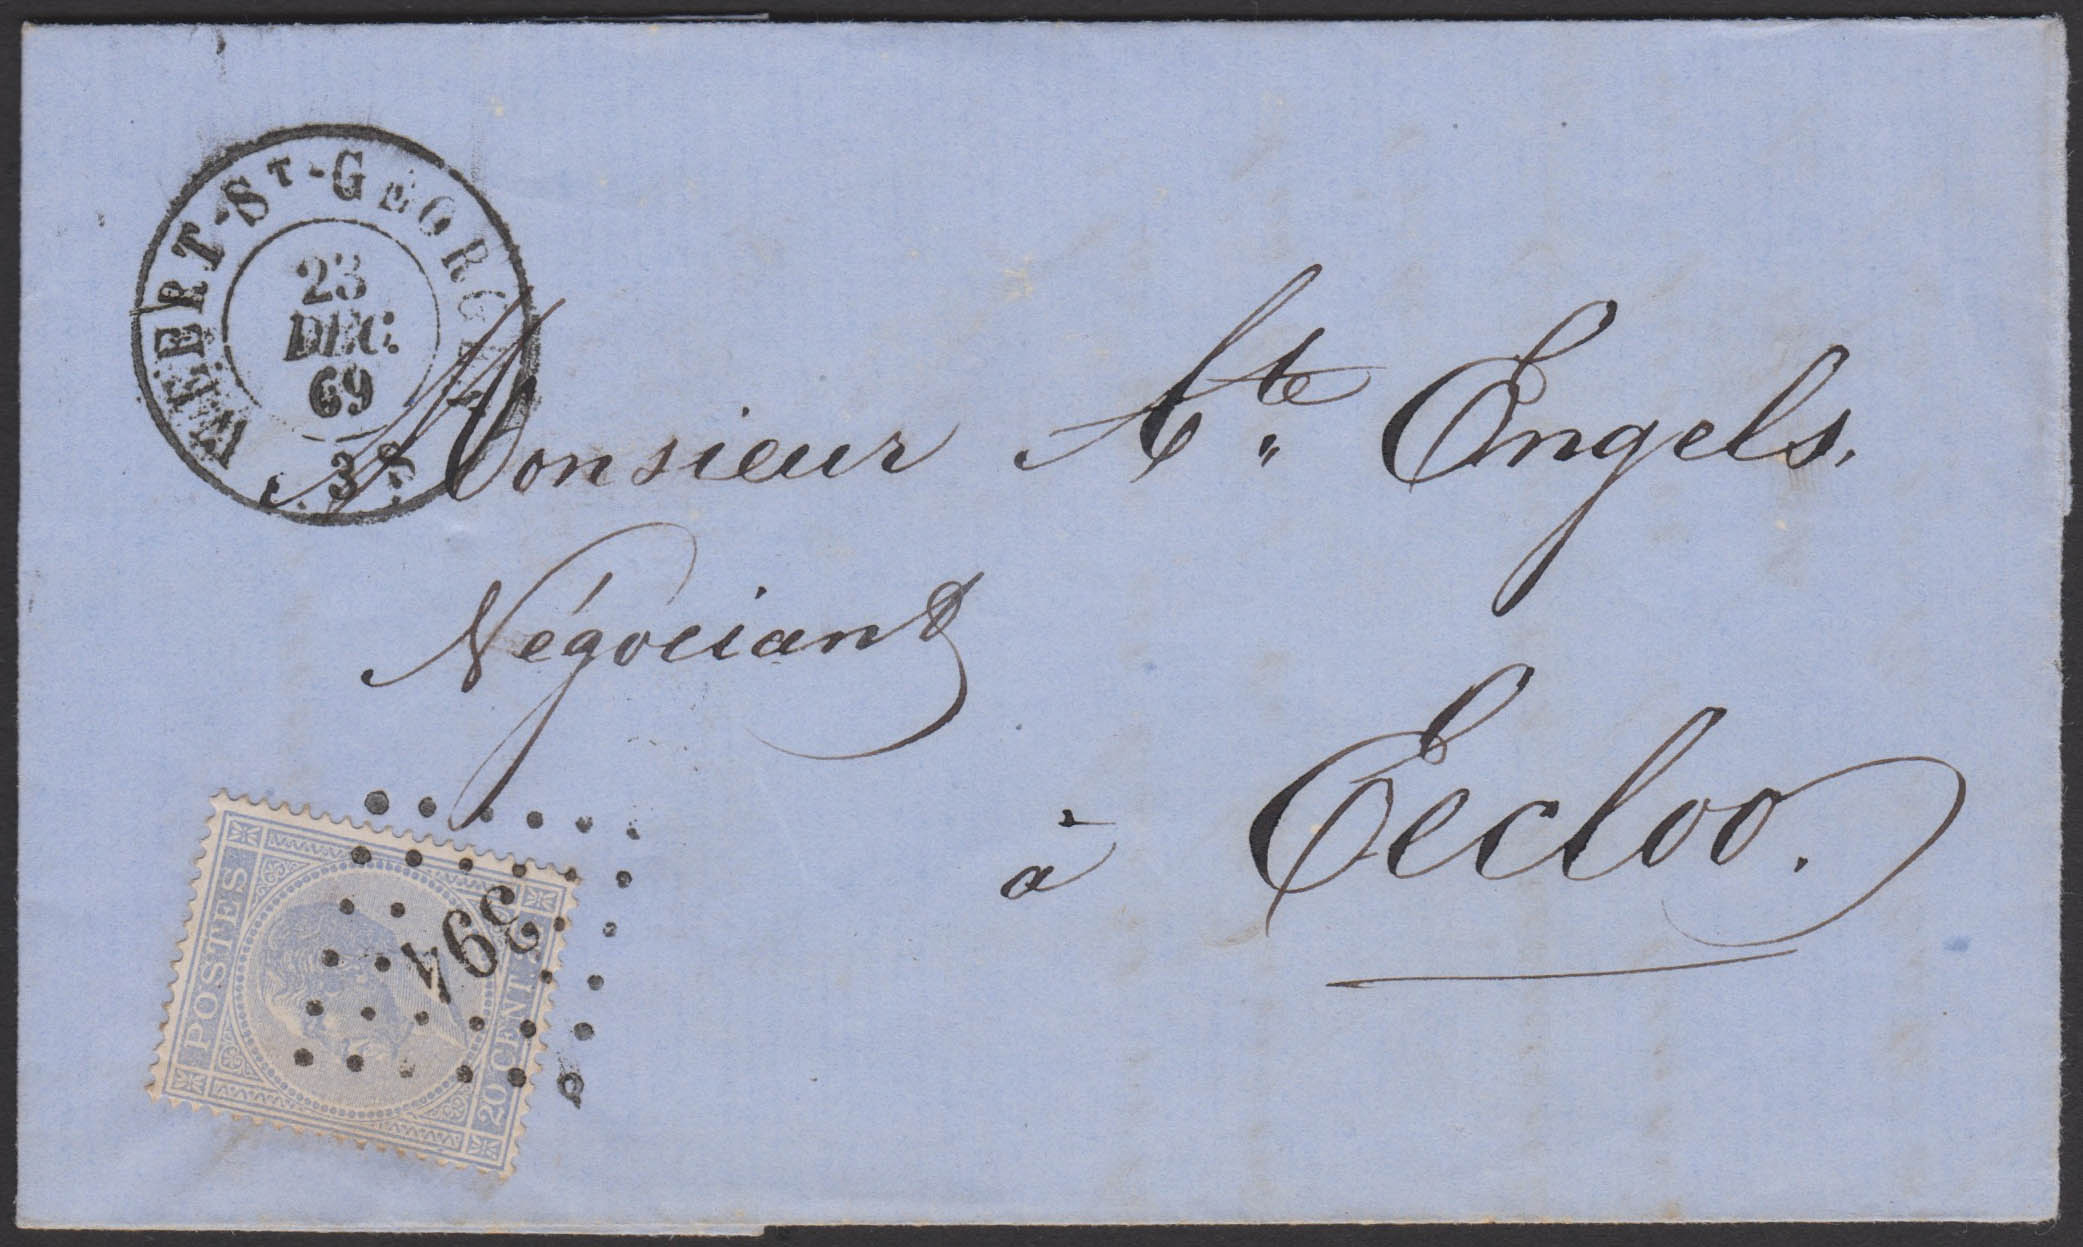 WEERT-ST-GEORGES
23
DEC.
69
3S
Monsieur Ate Engels.
Négociant
à Eecloo.
POSTES
394
20 CENTS